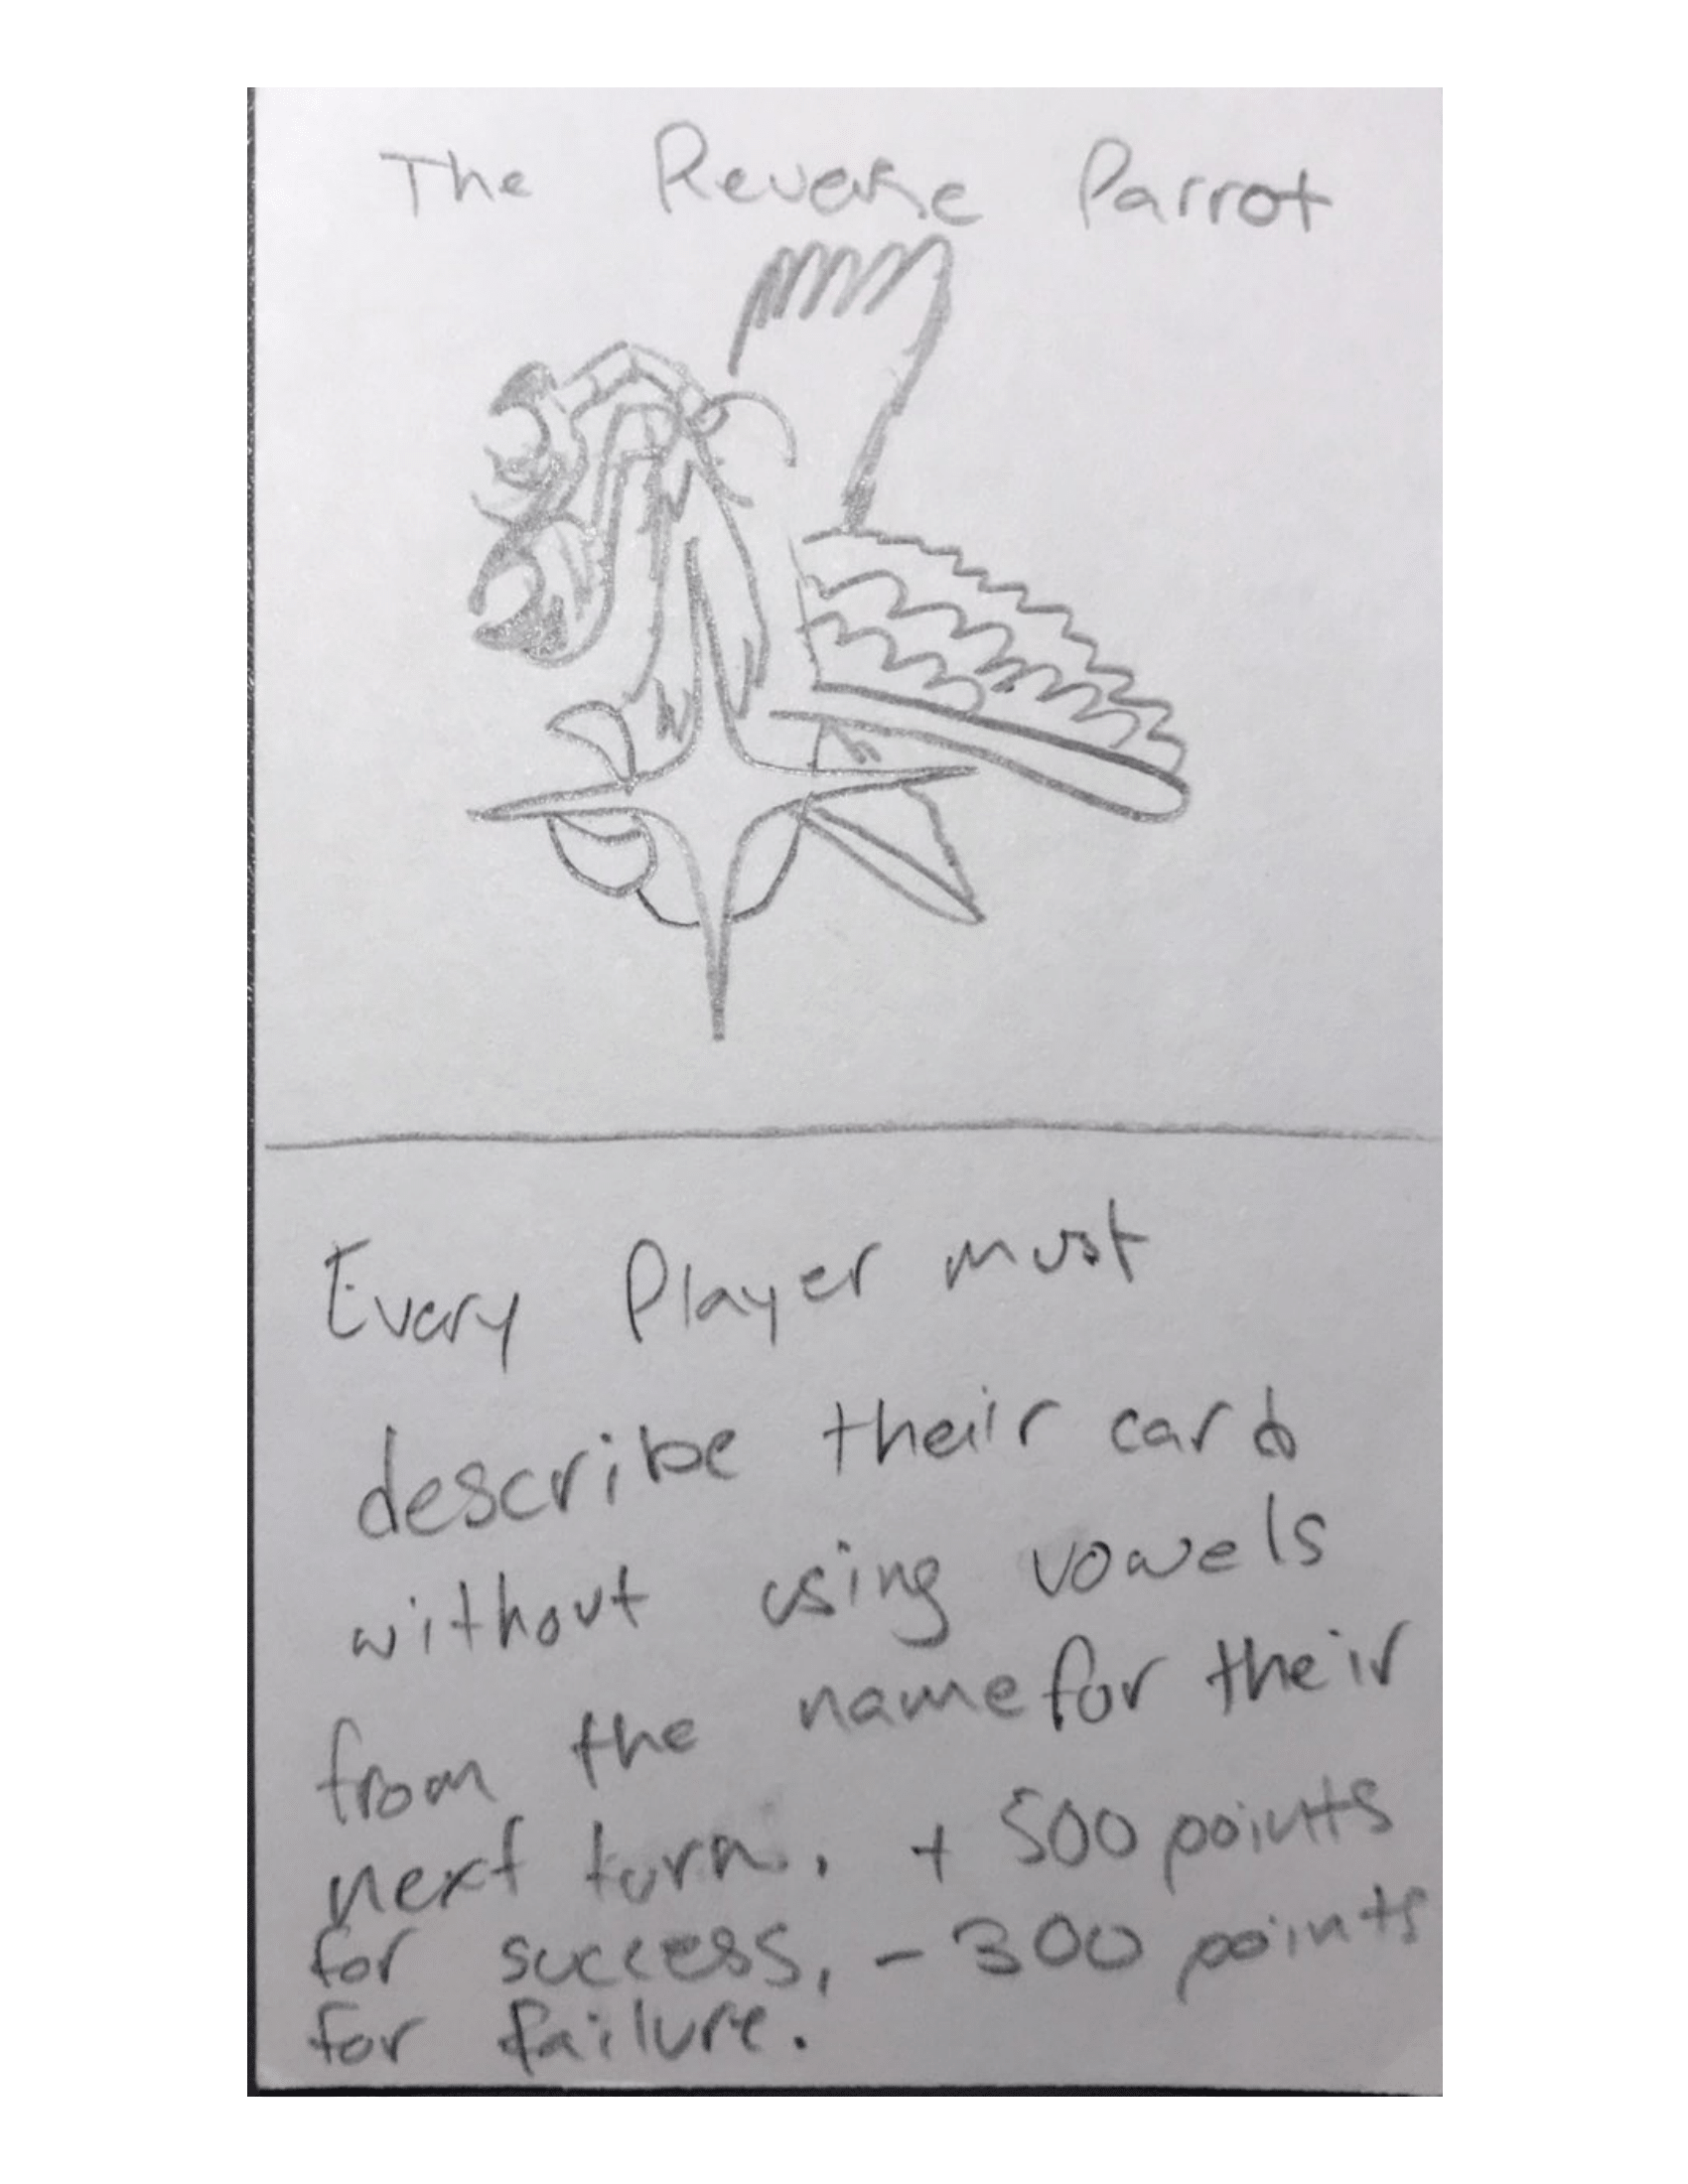 The Reverse Parrot
Every Player must
describe their card
without using vowels
from the name for their
next turn. + 500 points
for success, - 300 points
for failure.